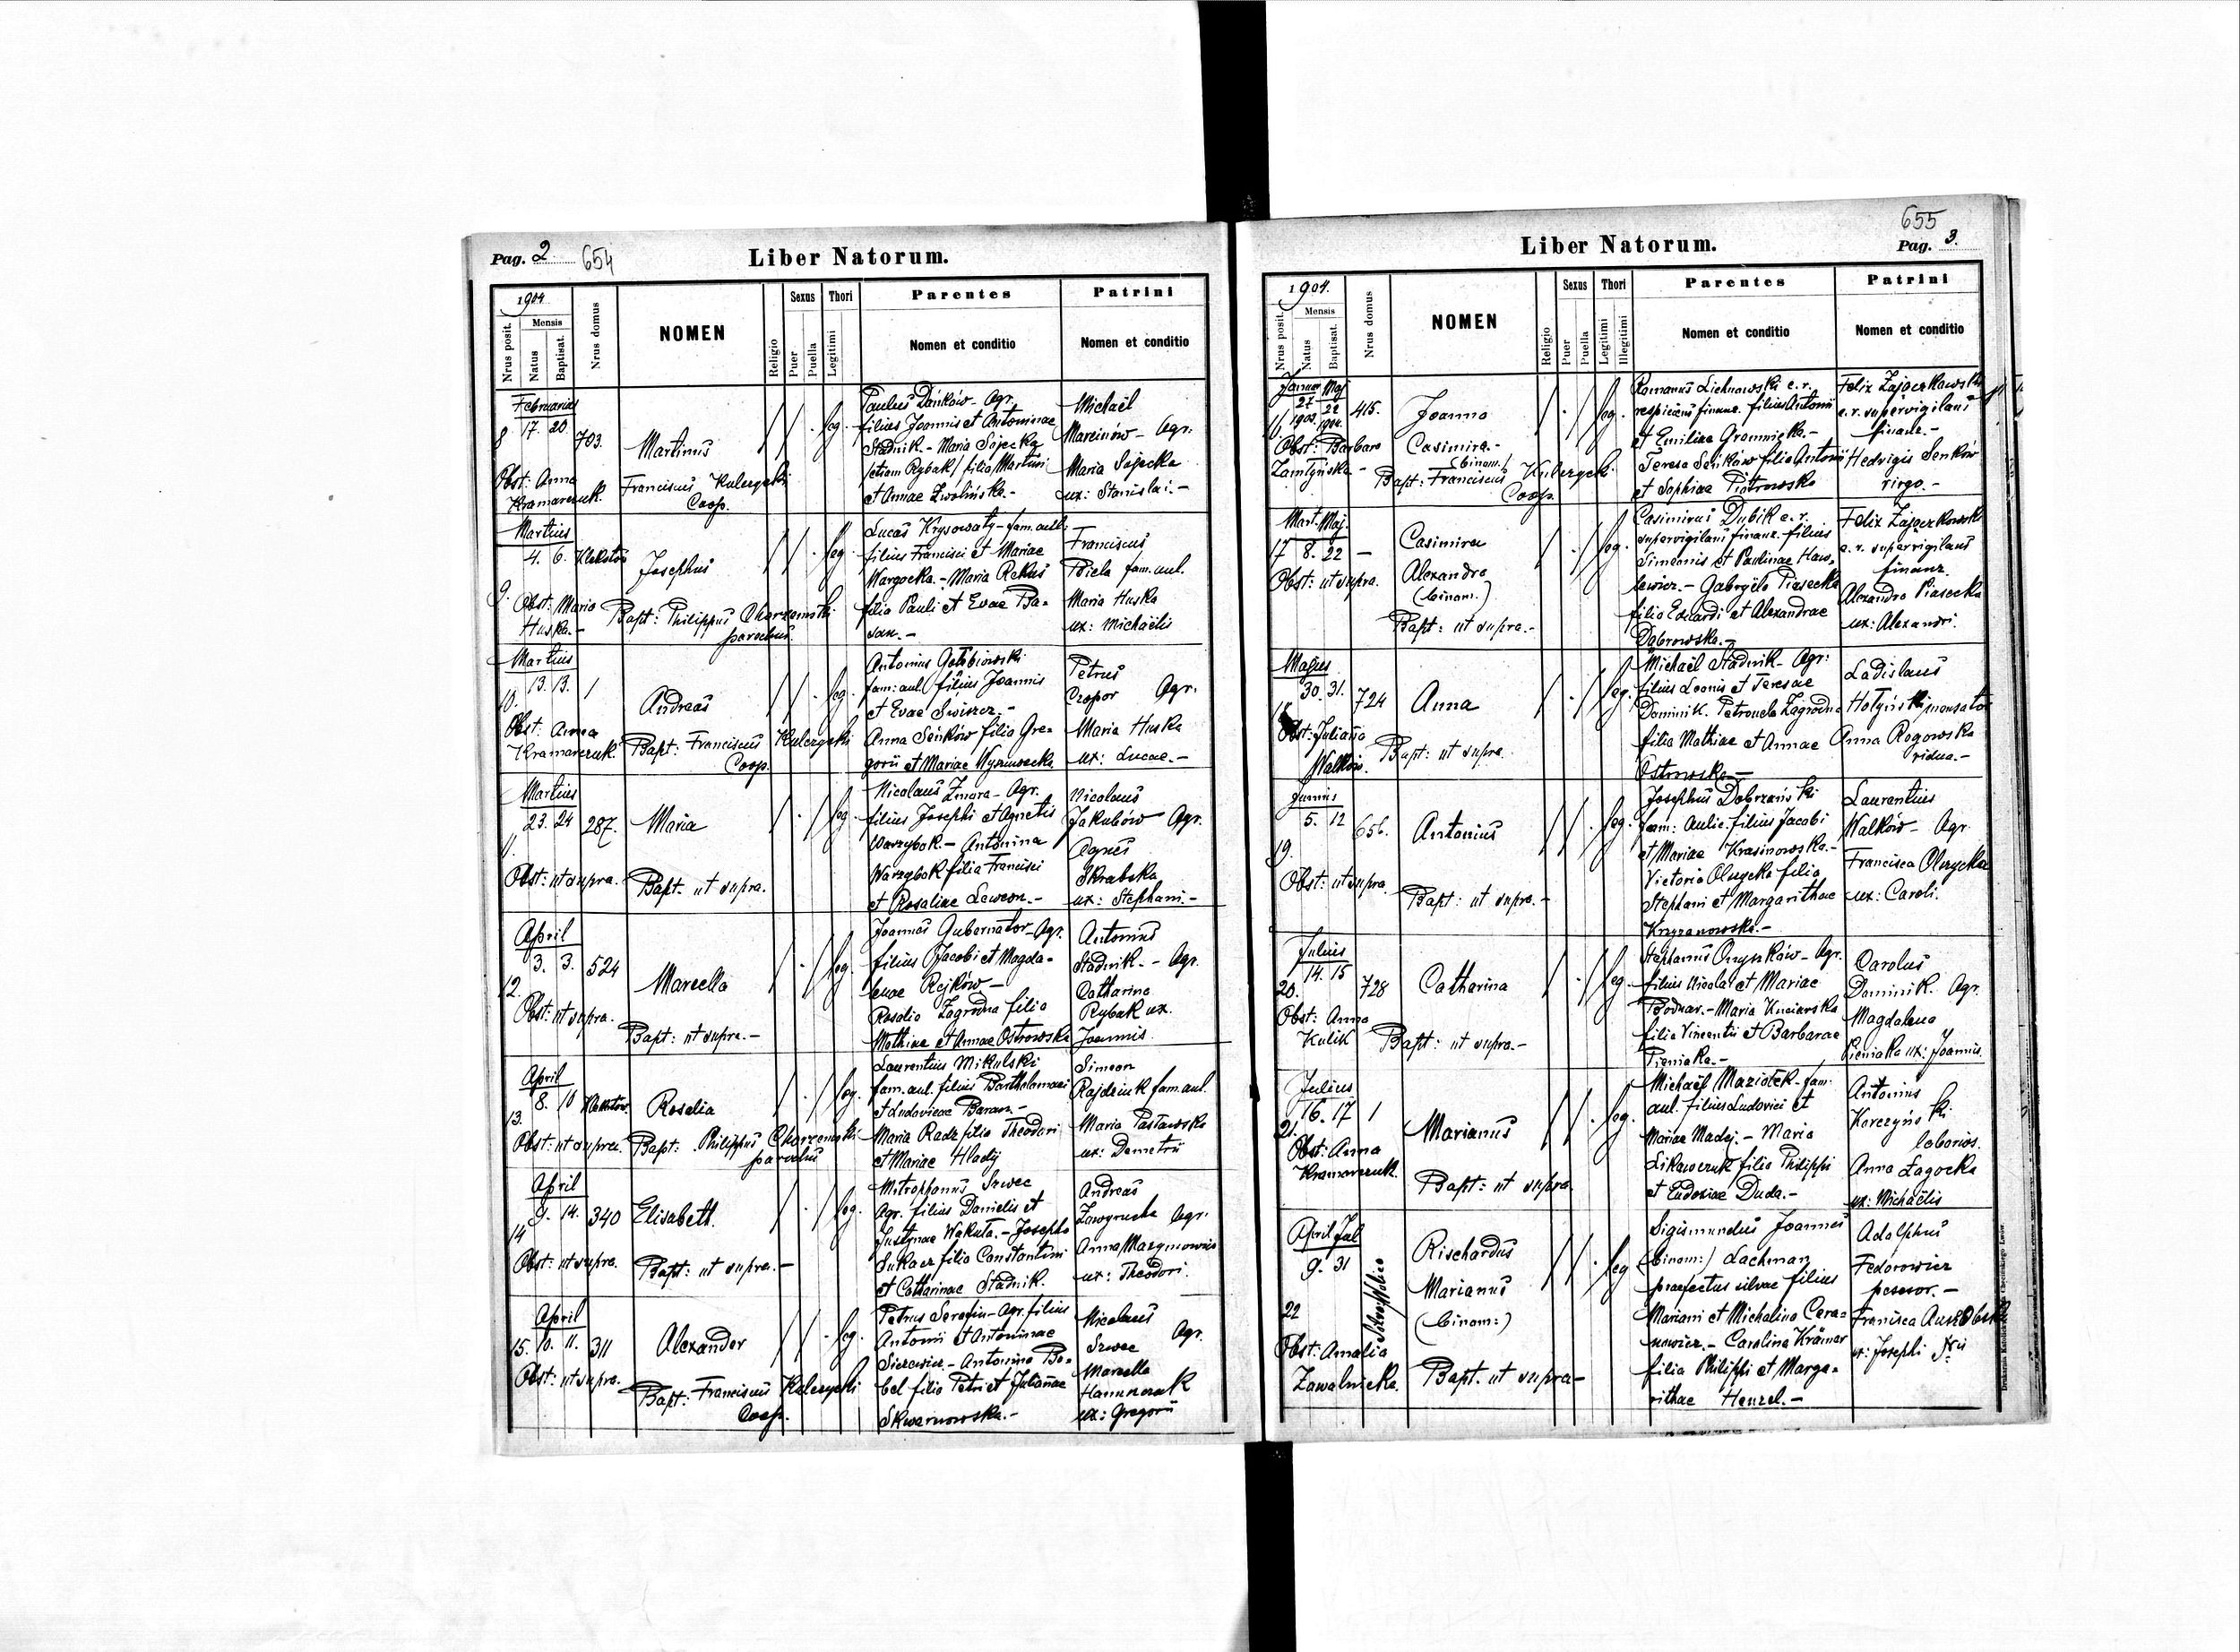 Pag. 2 654
Liber Natorum.
1904
Nrus posit.
Mensis
Natus
Baptisat.
Nrus domus
NOMEN
Religio
Sexus
Puer
Puella
Thori
Legitimi
Parentes
Nomen et conditio
Patrini
Nomen et conditio
Februarius
8 17. 20 703. Martinus leg.
Obst: Anna
Kramarczuk
Franciscus Kulczycki
Coop.
Paulus Dańków - Agr.
filius Joannis et Antoninae
Stadnik. - Maria Sojecka
/etiam Rybak/ filia Martini
et Annae Zwolińska. -
Michaël
Marcinów - Agr.
Maria Sojecka
ux: Stanislai. -
Martius
9. 4. 6. Josephus leg.
Obst: Maria
Huska. -
Bapt: Philippus
parochus
Lucas Krysowaty - fam. aul.
filius Francisci et Mariae
Wargocka. - Maria Rekus
filia Pauli et Evae Ba-
ran. -
Franciscus
Biela fam. aul.
Maria Huska
ux: Michaëlis
Martius
10. 13. 13. 1 Andreas leg.
Obst: Anna
Kramarczuk
Bapt: Franciscus Kulczycki
Coop.
Antonius Gołębiowski
fam: aul. filius Joannis
et Evae Swiszcz. -
Anna Seńków filia Gre-
gorii et Mariae
Petrus
Czopor Agr.
Maria Huska
ux: Lucae. -
Martius
11. 23. 24 287. Maria leg.
Obst: ut supra.
Bapt: ut supra.
Nicolaus Zmora - Agr.
filius Josephi et Agnetis
Warzybok. - Antonina
Warzybok filia Francisci
et Rosaliae Lewcon. -
Nicolaus
Jakubów Agr.
Agnes
Skrabska
ux: Stephani. -
April
12. 3. 3. 524 Marcella leg.
Obst: ut supra.
Bapt: ut supra. -
Joannes Gubernator - Agr.
filius Jacobi et Magda-
lenae Rejków -
Rosalia Zagrodna filia
Mathiae et Annae Ostrowska
Antonius
Stadnik. - Agr.
Catharina
Rybak ux.
Joannis
April
13. 8. 10 Rosalia leg.
Obst: ut supra.
Bapt: Philippus
parochus
Laurentius Mikulski
fam. aul. filius Bartholomaei
et Ludovicae Baran. -
Maria Radz filia Theodori
et Mariae Hladij
Simeon
Rajdziuk fam. aul.
Maria Pasławska
ux: Demetrii
April
14 9. 14. 340 Elisabeth. leg.
Obst: ut supra.
Bapt: ut supra. -
Mitrophanus Szwec
Agr. filius Danielis et
Justynae Wakuta. - Josepha
Sukacz filia Constantini
et Catharinae Stadnik.
Andreas
Zawyrucha Agr.
Anna
ux: Theodori.
April
15. 10. 11. 311 Alexander leg.
Obst: ut supra.
Bapt: Franciscus Kulczycki
Coop.
Petrus Serafin - Agr. filius
Antonii et Antoninae
Antonina Bo-
bel filia Petri et Julianae
Skwarnowska. -
Nicolaus
Szwec Agr.
Marcella
ux: Gregorii
655
Pag. 3.
Liber Natorum.
1904.
Nrus posit.
Mensis
Natus
Baptisat.
Nrus domus
NOMEN
Religio
Sexus
Puer
Puella
Thori
Legitimi
Illegitimi
Parentes
Nomen et conditio
Patrini
Nomen et conditio
Januar Maj
16 27 22 415. Joanna leg.
1903. 1904.
Casimira. -
(binom.)
Obst: Barbara
Bapt: Franciscus Kulczycki
Coop.
Romanus Lichnowski c. r.
respiciens financ. filius Antonii
et Emiliae Gromnicka. -
Teresa Seńków filia Antonii
et Sophiae Piotrowska
Felix Zajączkowski
c. r. supervigilans
financ. -
Hedvigis Seńków
virgo. -
Mart. Maj.
17 8. 22 - Casimira leg.
Alexandra
(binom.)
Obst: ut supra.
Bapt: ut supra. -
Casimirus Dubik c. r.
supervigilans financ. filius
Simeonis et Paulinae Haw-
lewicz. - Gabryela Piasecka
filia Eduardi et Alexandrae
Dąbrowska. -
Felix Zajączkowski
c. r. supervigilans
financ.
Alexandra Piasecka
ux: Alexandri.
Majus
30. 31. 724 Anna leg.
Obst: Juliana
Walków.
Bapt: ut supra.
Michaël Stadnik - Agr:
filius Leonis et Teresae
Dominik. Petronela Zagrodna
filia Mathiae et Annae
Ostrowska. -
Ladislaus
Hołyński mensator
Anna Rogowska
vidua. -
Junius
19. 5. 12 656. Antonius leg.
Obst: ut supra.
Bapt: ut supra. -
Josephus Dobrzański
fam: Aulic. filius Jacobi
et Mariae Krasinowska. -
Victoria Olszycka filia
Stephani et Margarithae
Krzyzanowska. -
Laurentius
Walków - Agr.
Francisca Olszycka
ux: Caroli.
Julius
20. 14. 15 728 Catharina leg.
Obst: Anna
Kulik
Bapt: ut supra. -
Stephanus Onyszków - Agr.
filius Nicolai et Mariae
Bodnar. - Maria Kuciarska
filia Vincentii et Barbarae
Pieniaka. -
Carolus
Dominik. Agr.
Magdalena
Pieniaka ux: Joannis.
Julius
21. 16. 17 1 Marianus leg.
Obst: Anna
Kramarczuk.
Bapt: ut supra.
Michaël Maziołek - fam.
aul. filius Ludovici et
Mariae Madej. - Maria
Likawczuk filia Philippi
et Eudoxiae Duda. -
Antonius
Korczyński
laborios.
Anna Łagocka
ux: Michaëlis
April Jul
22 9. 31 Rischardus leg
Marianus
(binom:)
Obst: Amalia
Zawalnicka.
Bapt. ut supra -
Sigismundus Joannes
(binom:) Lachman
praefectus silvae filius
Mariani et Michalina Cera-
nowicz. - Carolina Krämer
filia Philippi et Marga-
rithae Henzel. -
Adolphus
Fedorowicz
posesor. -
Francisca
ux: Josephi